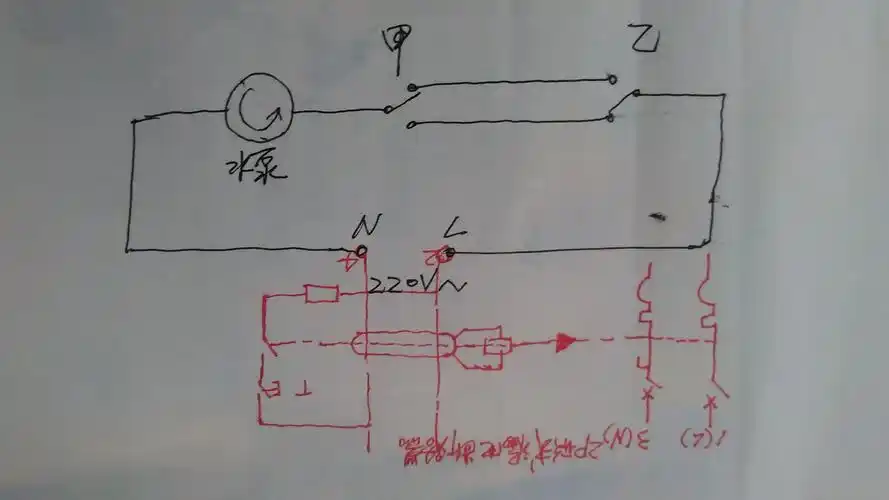 甲
乙
水泵
N
L
220V~
4
2
T
E
3(N)
1(L)
2P形式漏电断路器